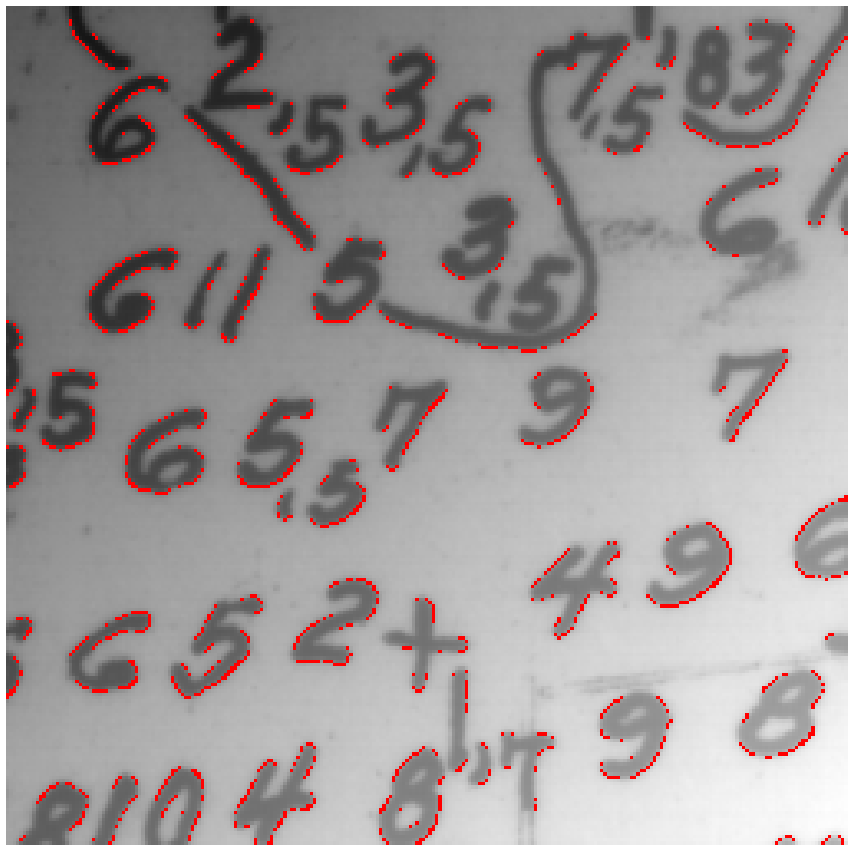 6 2,5 3,5 7,5 83
611 5 3,5 6 1
,5 65,5 7 9 7
4 9 6
652+
1,7 9 8
8104 8